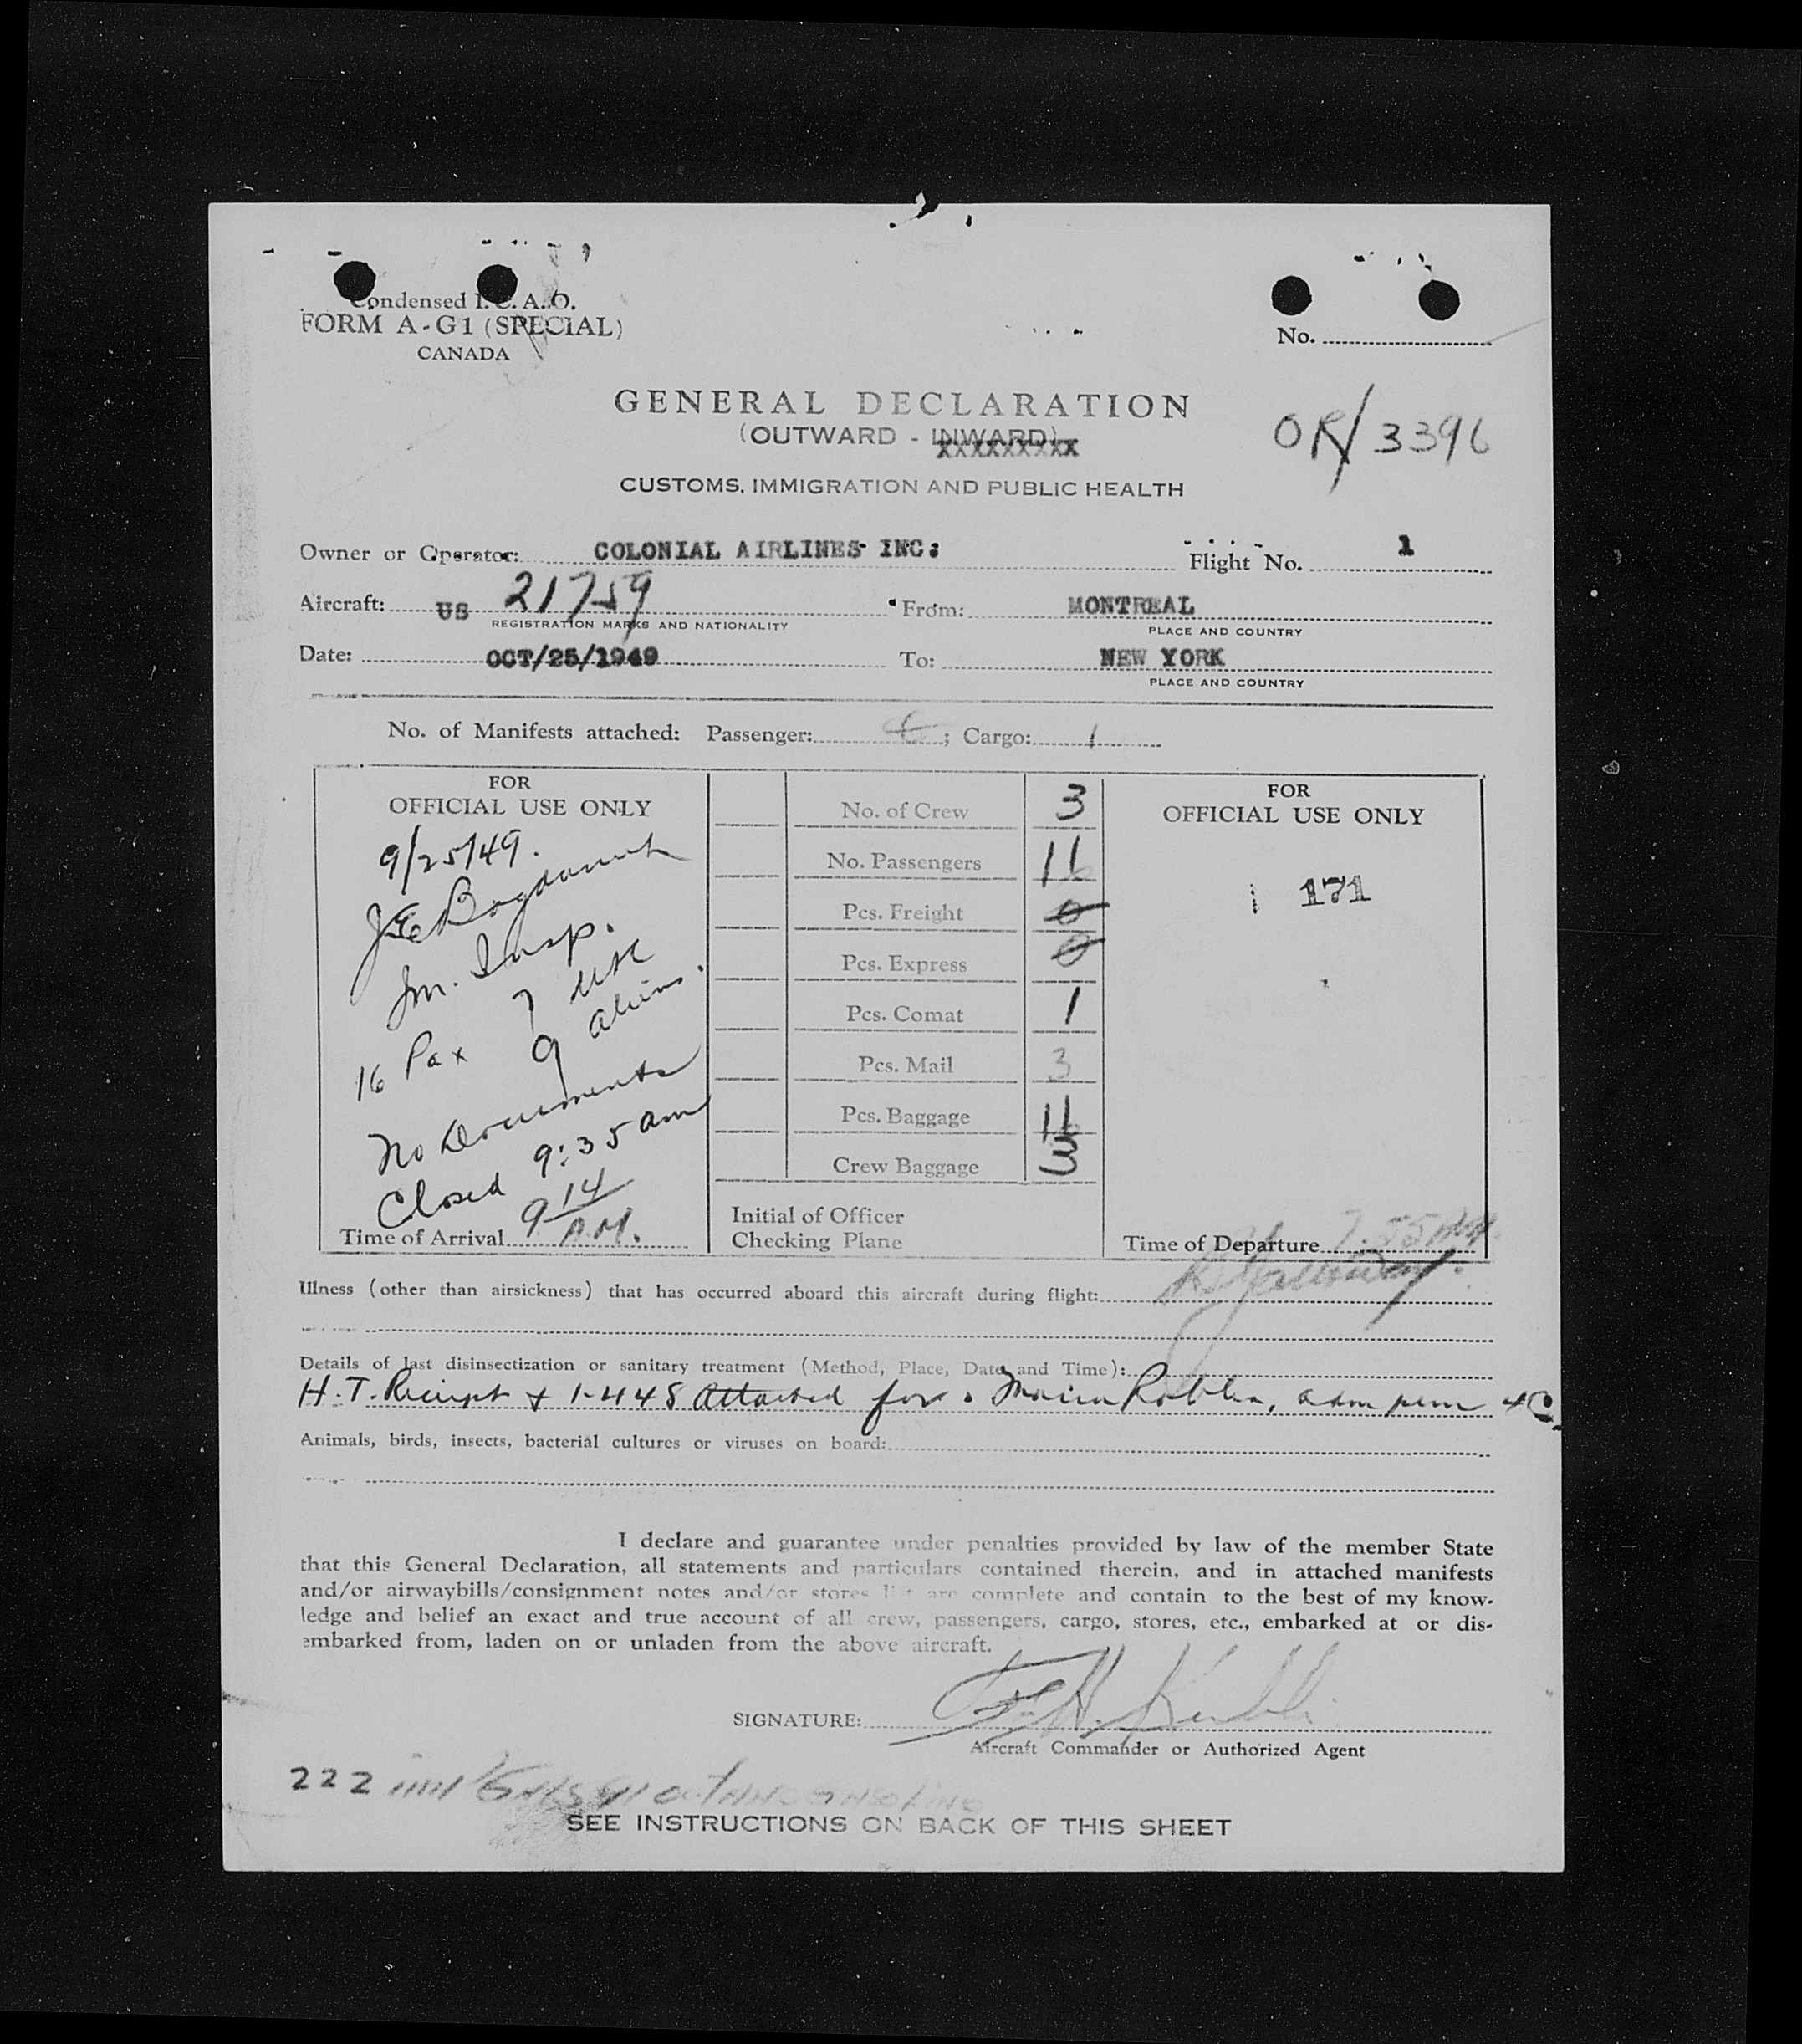 Condensed I.C.A.O.
FORM A-G1 (SPECIAL)
CANADA
No.
GENERAL DECLARATION
(OUTWARD - INWARD)
XXXXXXXXX
OK/ 3396
CUSTOMS, IMMIGRATION AND PUBLIC HEALTH
Owner or Operator: COLONIAL AIRLINES INC: Flight No. 1
Aircraft: US 21759 From: MONTREAL
REGISTRATION MARKS AND NATIONALITY PLACE AND COUNTRY
Date: OCT/25/1949 To: NEW YORK
PLACE AND COUNTRY
No. of Manifests attached: Passenger: ; Cargo: 1
FOR
OFFICIAL USE ONLY
9/25/49.
Im. Insp.
16 Pax 7 USC
9 aliens.
No Documents
Closed 9:35 am
Time of Arrival 9 14 A.M.
No. of Crew 3
No. Passengers 16
Pcs. Freight 0
Pcs. Express 0
Pcs. Comat 1
Pcs. Mail 3
Pcs. Baggage 16
Crew Baggage 3
Initial of Officer
Checking Plane
FOR
OFFICIAL USE ONLY
171
Time of Departure 7.55
Illness (other than airsickness) that has occurred aboard this aircraft during flight:
Details of last disinsectization or sanitary treatment (Method, Place, Date, and Time):
H.T. Receipt + 1-448 Attached for
Animals, birds, insects, bacterial cultures or viruses on board:
I declare and guarantee under penalties provided by law of the member State
that this General Declaration, all statements and particulars contained therein, and in attached manifests
and/or airwaybills/consignment notes and/or stores list are complete and contain to the best of my know-
ledge and belief an exact and true account of all crew, passengers, cargo, stores, etc., embarked at or dis-
embarked from, laden on or unladen from the above aircraft.
SIGNATURE:
Aircraft Commander or Authorized Agent
222
SEE INSTRUCTIONS ON BACK OF THIS SHEET